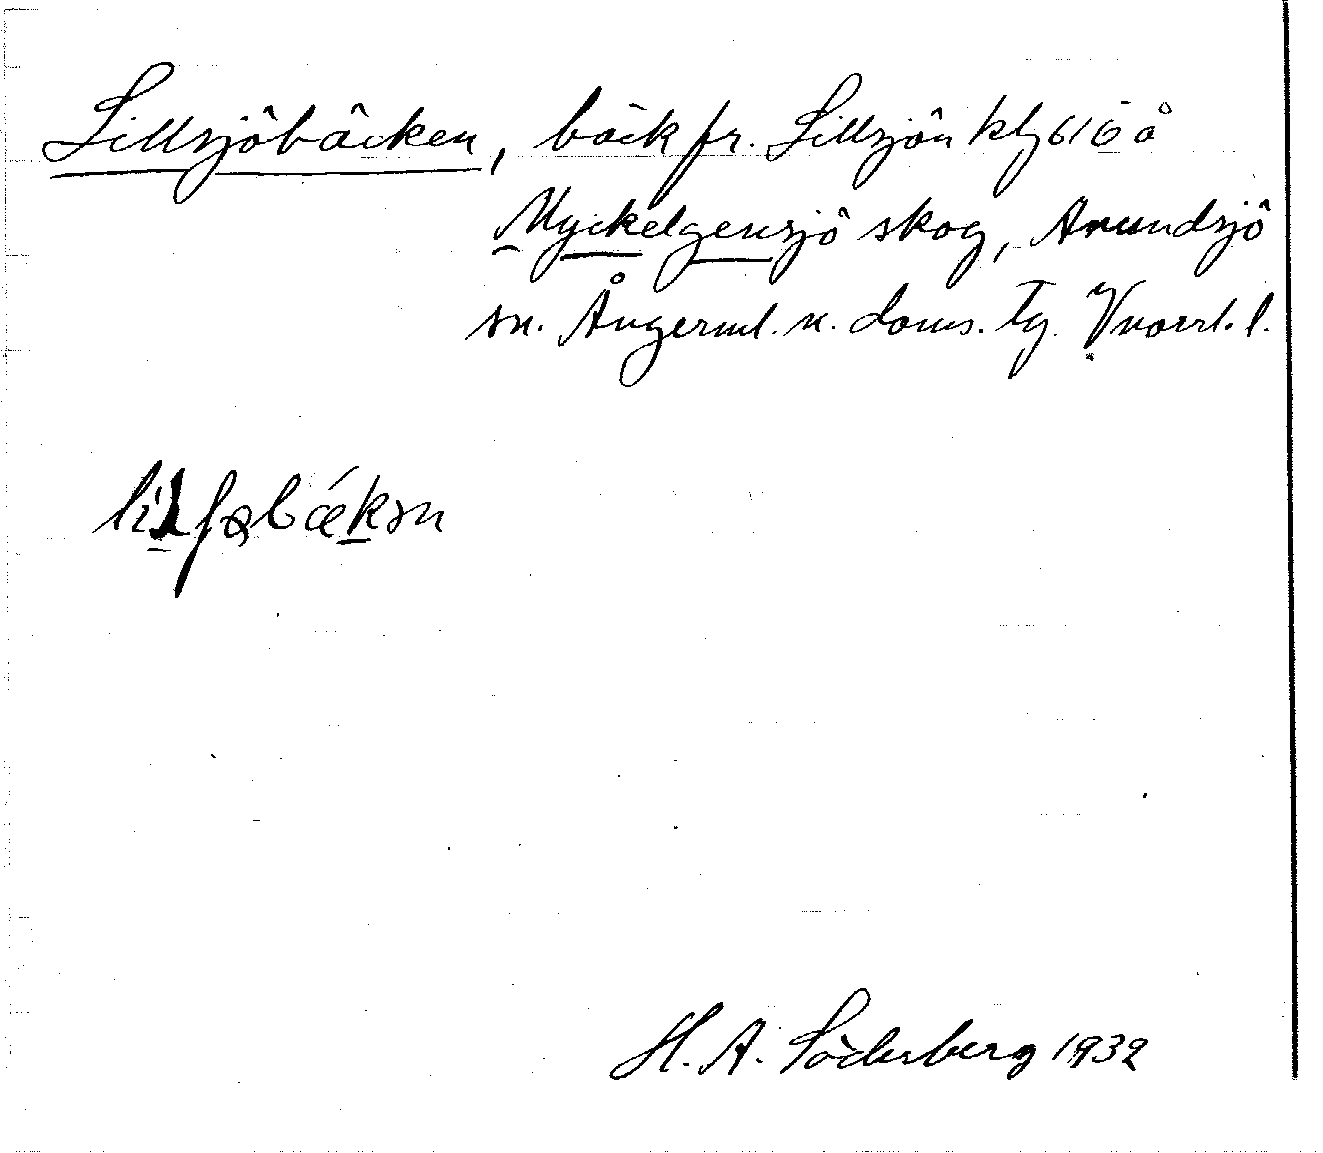 Lillsjöbäcken, bäck fr. Lillsjön klg 616 å
Myckelgensjö skog, Anundsjö
sn. Ångerml. n. doms. tg. Vnorrl. l.
H. A. Söderberg 1932